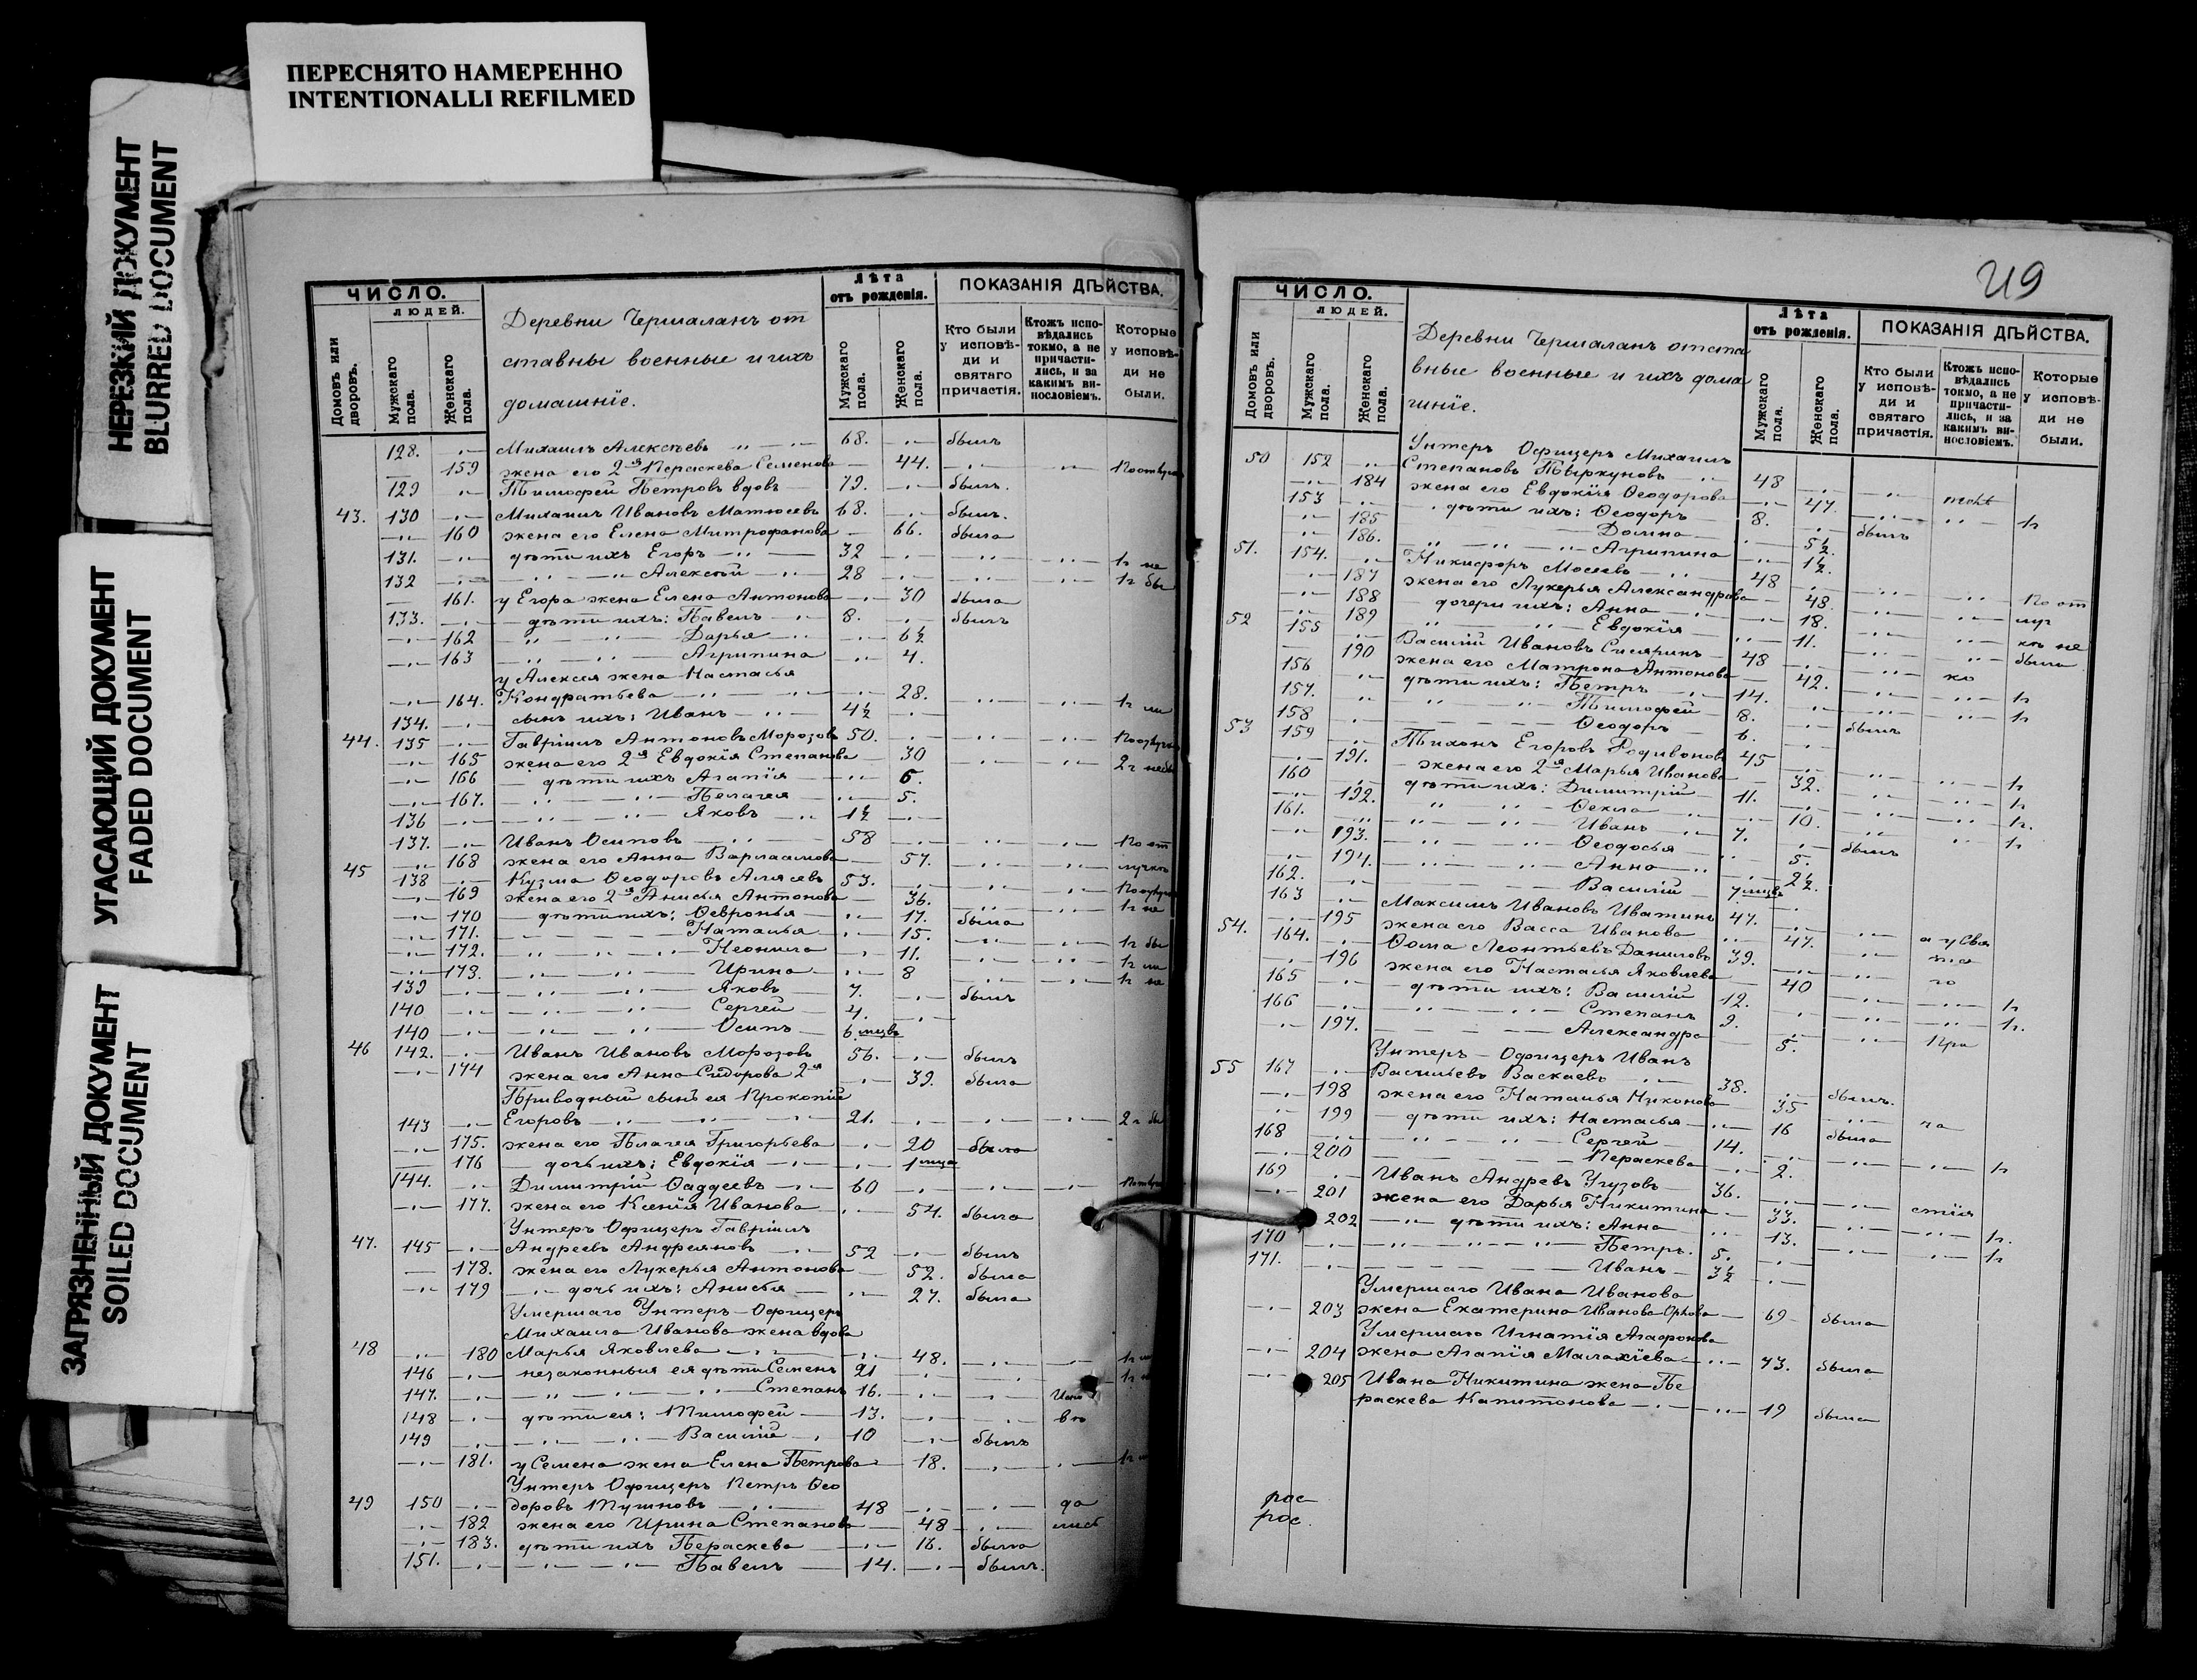 ПЕРЕСНЯТО НАМЕРЕННО
INTENTIONALLI REFILMED
НЕРЕЗКИЙ ДОКУМЕНТ
BLURRED DOCUMENT
УГАСАЮЩИЙ ДОКУМЕНТ
FADED DOCUMENT
ЗАГРЯЗНЕННЫЙ ДОКУМЕНТ
SOILED DOCUMENT
ЧИСЛО.
ЛЮДЕЙ.
Домовъ или дворовъ.
Мужскаго пола.
Женскаго пола.
Деревни Чермаланъ от
ставны военные и ихъ
домашніе.
Лѣта
отъ рожденія.
Мужскаго пола.
Женскаго пола.
ПОКАЗАНІЯ ДѢЙСТВА.
Кто были у исповѣди и святаго причастія.
Ктожъ исповѣдались токмо, а не причастились, и за какимъ винословіемъ.
Которые у исповѣди не были.
128. Михаилъ Алексѣевъ 68. былъ
159 жена его 2я Параскева Семенова 44.
129 Тимофей Петровъ вдовъ 79. былъ.
43. 130 Михаилъ Ивановъ Матюсевъ 68. былъ.
160 жена его Елена Митрофанова 66. была
131. дѣти ихъ Егоръ 32 1г не
132 Алексѣй 28 1г бы
161. у Егора жена Елена Антонова 30 была
133. дѣти ихъ: Павелъ 8. былъ
162 Дарья 6½
163 Агрипина 4.
у Алексея жена Настасья
164. Кондратьева 28. 1г
134. сынъ ихъ: Иванъ 4½
44. 135 Гавріилъ Антоновъ Морозовъ 50.
165 жена его 2я Евдокія Степанова 30
166 дѣти ихъ Агапія 6.
167. Пелагея 5.
136 Яковъ 1½
137. Иванъ Осиповъ 58 По от
168 жена его Анна Варлаамова 57.
45 138 Кузма Ѳеодоровъ 53.
169 жена его 2я Анисья Антонова 36. 1г не
170 дѣти ихъ: Февронья 17. была
171. Наталья 15. 1г бы
172. Неонила 11. 1г
173. Ирина 8 1г не
139 Яковъ 7. былъ
140 Сергей 4.
140 Осипъ 6 мцвъ
46 142. Иванъ Ивановъ Морозовъ 56. былъ
174 жена его Анна Сидорова 2я 39. была
Приводный сынъ ея Прокопій
143 Егоровъ 21. 2г бы
175. жена его Плагея Григорьева 20 была
176 дочь ихъ: Евдокія 1 мца
144. Димитрій Фаддеевъ 60
177. жена его Ксенія Иванова 54. была
Унтеръ Офицеръ Гавріилъ
47. 145 Андреевъ Андреяновъ 52 былъ
178. жена его Лукерья Антонова 52. была
179 дочь ихъ: Анисья 27. была
Умершаго Унтеръ-Офицера
Михаила Иванова жена вдова
48 180 Марья Яковлева 48. 1г
146 незаконныя ея дѣти Семенъ 21 1г
147. Степанъ 16.
148 дѣти ея: Тимофей 13.
149 Василій 10 былъ
181. у Семена жена Елена Петрова 18. 1г
Унтеръ Офицеръ Петръ Ѳео
49 150 доровъ 48 да
182 жена его Ирина Степанова 48
183. дѣти ихъ Пераскева 16. была
151. Павелъ 14. былъ.
ЧИСЛО.
ЛЮДЕЙ.
Домовъ или дворовъ.
Мужскаго пола.
Женскаго пола.
Деревни Чермаланъ отста
вные военные и ихъ дома
шніе.
Лѣта
отъ рожденія.
Мужскаго пола.
Женскаго пола.
ПОКАЗАНІЯ ДѢЙСТВА.
Кто были у исповѣди и святаго причастія.
Ктожъ исповѣдались токмо, а не причастились, и за какимъ винословіемъ.
Которые у исповѣди не были.
Унтеръ Офицеръ Михаилъ
50 152 Степановъ Тыркуновъ 48
184 жена его Евдокія Ѳеодорова 47. 1г
153 дѣти ихъ: Ѳеодоръ 8. былъ
185 Домна 5½
186. Агрипина 1½.
51. 154. Никифоръ Мосеевъ 48 По от
187 жена его Лукерья Александрова 48.
188 дочери ихъ: Анна 18. не
189 Евдокія 11. была
52 155 Василій Ивановъ 48
190 жена его Матрона Антонова 42. 1г
156 дѣти ихъ: Петръ 14. 1г
157. Тимофей 8. былъ
158 Ѳеодоръ 6.
53 159 Тихонъ Егоровъ Родивоновъ 45 1г
191. жена его 2я Марья Иванова 32. 1г
160 дѣти ихъ: Димитрій 11. 1г.
192. Ѳекла 10. 1г
161. Иванъ 7. былъ
193. Ѳеодосья 5.
194. Анна 2½.
162. Василій 7 мцвъ
163 Максимъ Ивановъ Иватинъ 47.
195 жена его Васса Иванова 47.
54. 164. Ѳома Леонтьевъ Даниловъ 39.
196 жена его Настасья Яковлева 40 1г
165 дѣти ихъ: Василій 12. 1г.
166 Степанъ 9.
197. Александра 5.
Унтеръ-Офицеръ Иванъ
55 167 Васильевъ Васкаевъ 38. былъ.
198 жена его Наталья Никонова 35
199 дѣти ихъ: Настасья 16 была
168 Сергей 14. 1г
200 Пераскева 2.
169 Иванъ Андревъ Угузовъ 36. стія
201 жена его Дарья Никитина 33. 1г.
202 дѣти ихъ: Анна 13. 1г
170 Петръ. 5.
171. Иванъ 3½
Умершаго Ивана Иванова
203 жена Екатерина Иванова Орлова 69 была
Умершаго Игнатія Агафонова
204 жена Агапія Малахіева 73. была
205 Ивана Никитина жена Пе
раскева Капитонова 19 была
рос
рос.